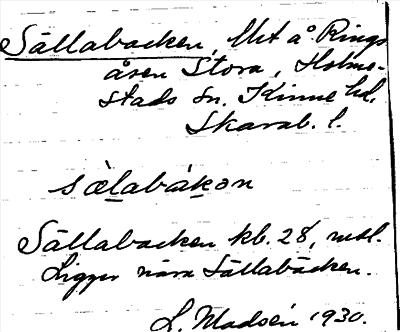 Sällabacken, Utt å Rings
åsen Stora, Holme-
stads sn. Kinne hd.
Skarab. l.
sælabákən
Sällabacken kb. 28, nutl.
Ligger nära Sällabäcken.
L. Madsén 1930.